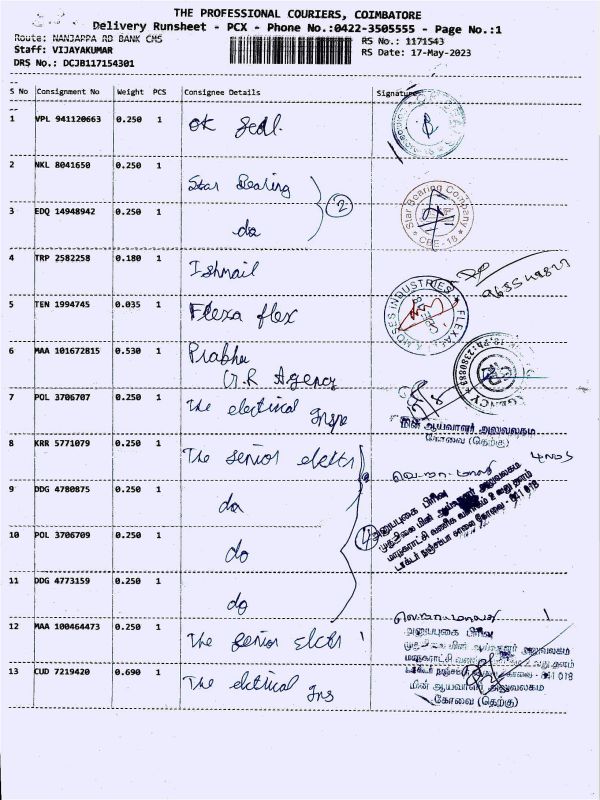 THE PROFESSIONAL COURIERS, COIMBATORE
Delivery Runsheet - PCX - Phone No.:0422-3505555 - Page No.:1
Route: NANJAPPA RD BANK CMS
RS No.: 1171543
Staff: VIJAYAKUMAR
RS Date: 17-May-2023
DRS No.: DCJB117154301
S No Consignment No Weight PCS Consignee Details Signature
1 VPL 941120663 0.250 1 OK Seal.
2 NKL 8041650 0.250 1 Star Bearing
2
Star Bearing Company
CBE-18
3 EDQ 14948942 0.250 1 do
4 TRP 2582258 0.180 1 Ishmail
5 TEN 1994745 0.035 1 Flexa flex
MOSES INDUSTRIES
6 MAA 101672815 0.530 1 Prabhu
G.R Agency
7 POL 3706707 0.250 1 The electrical Inspe
மின் ஆய்வாளர் அலுவலகம்
கோவை (தெற்கு)
8 KRR 5771079 0.250 1 The senior elctri
4 nos
9 DDG 4780875 0.250 1 do
அனுப்புகை பிரிவு
10 POL 3706709 0.250 1 do
4
11 DDG 4773159 0.250 1 do
12 MAA 100464473 0.250 1 The senior elctri
அனுப்புகை பிரிவு
13 CUD 7219420 0.690 1 The elctrical Ins
மின் ஆய்வாளர் அலுவலகம்
கோவை (தெற்கு)